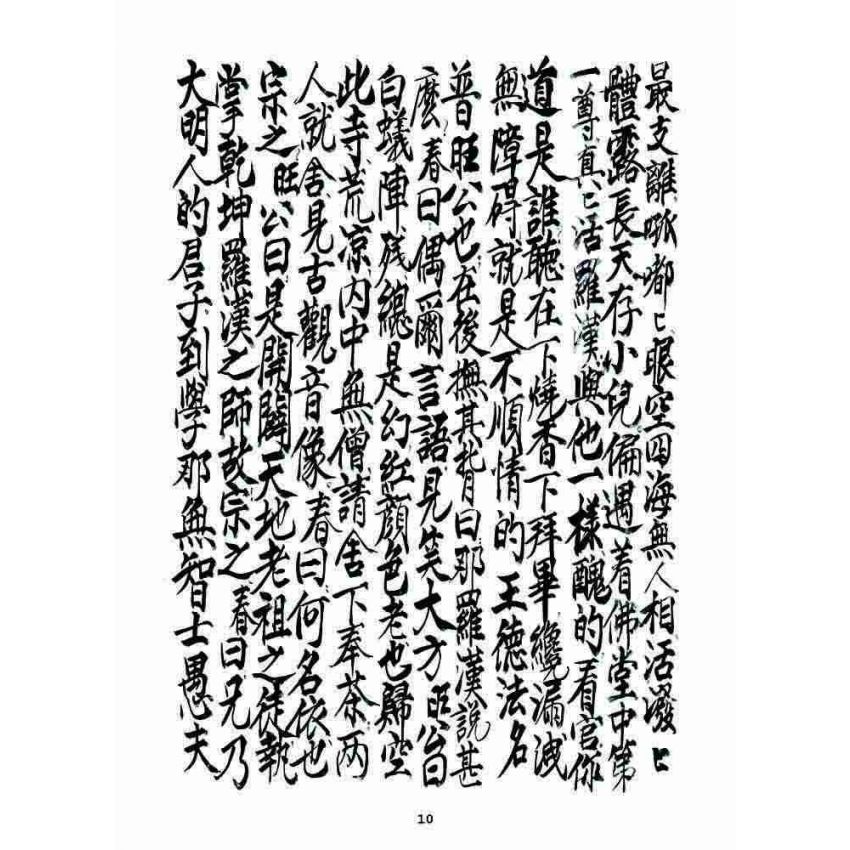 最支離呱嘟〻眼空四海無人相活潑〻
體露長天存小兒偏遇着佛堂中第
一尊真〻活羅漢與他一樣醜的看官你
道是誰聽在下燒香下拜畢纔漏洩
無障碍就是不順情的王德法名
普旺公也在後撫其背曰那羅漢說甚
麼春曰偶爾言語見笑大方旺公曰
白蟻陣殘總是幻紅顏色老也歸空
此寺荒凉内中無僧請舍下奉茶两
人就舍見古觀音像春曰何名依也
宗之旺公曰是開闢天地老祖之徒執
掌乾坤羅漢之師故宗之春曰兄乃
大明人的君子到學那無智士愚夫
10